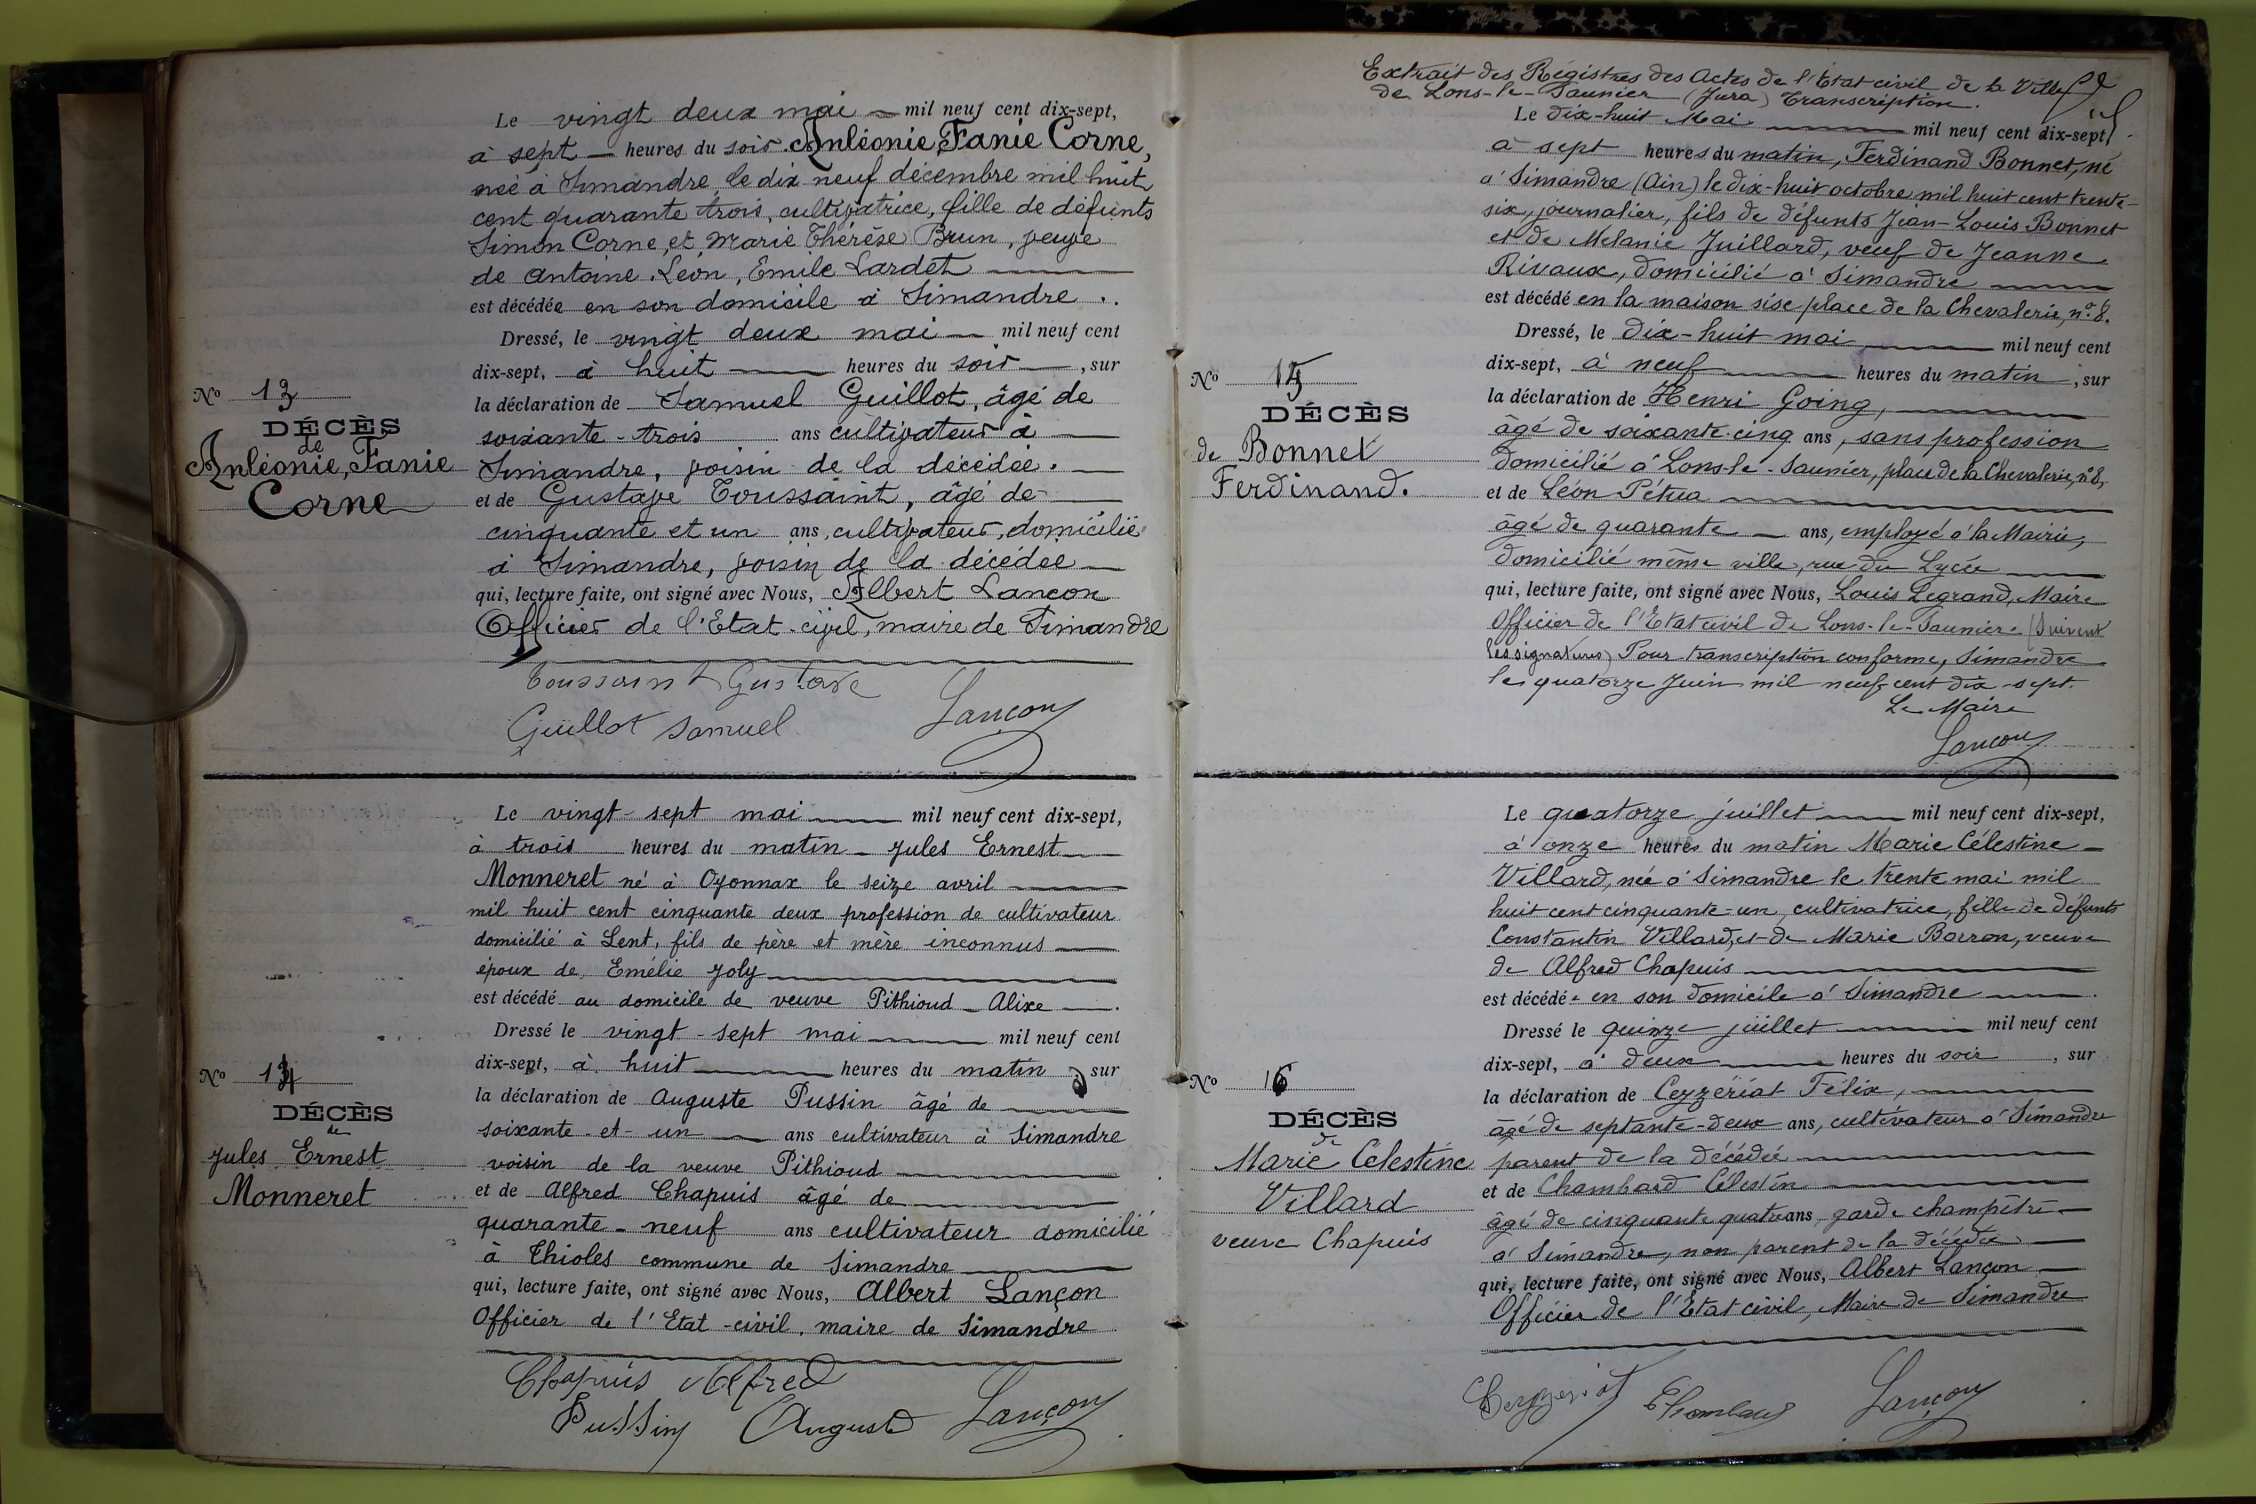 Le vingt deux mai mil neuf cent dix-sept,
à sept heures du soir Anléonie, Fanie Corne,
née à Simandre, le dix neuf décembre mil huit
cent quarante trois, cultivatrice, fille de défunts
Simon Corne, et Marie Thérèse Brun, veuve
de Antoine. Léon, Emile Lardet
est décédée en son domicile à Simandre ..
Dressé, le vingt deux mai mil neuf cent
dix-sept, à huit heures du soir, sur
la déclaration de Samuel Guillot, âgé de
soixante-trois ans cultivateur à
Simandre, voisin de la décédée.
et de Gustave Toussaint, âgé de
cinquante et un ans, cultivateur, domicilié
à Simandre, voisin de la décédée
qui, lecture faite, ont signé avec Nous, Albert Lancon
Officier de l'Etat-civil, maire de Simandre
Toussaint Gustave
Guillot Samuel Lançon
No 13
DÉCÈS
de
Anléonie, Fanie
Corne
Le vingt-sept mai mil neuf cent dix-sept,
à trois heures du matin Jules Ernest
Monneret né à Oyonnax le seize avril
mil huit cent cinquante deux profession de cultivateur
domicilié à Lent, fils de père et mère inconnus
époux de Emélie Joly
est décédé au domicile de veuve Pithioud Alixe
Dressé le vingt-sept mai mil neuf cent
dix-sept, à huit heures du matin, sur
la déclaration de Auguste Pussin âgé de
soixante-et-un ans cultivateur à Simandre
voisin de la veuve Pithioud
et de Alfred Chapuis âgé de
quarante-neuf ans cultivateur domicilié
à Thioles commune de Simandre
qui, lecture faite, ont signé avec Nous, Albert Lançon
Officier de l'Etat-civil. maire de Simandre
Chapuis Alfred
Pussin Auguste Lançon
No 14
DÉCÈS
de
Jules Ernest
Monneret
Extrait des Régistres des Actes de l'Etat civil de la Ville
de Lons-le-Saunier (Jura) Transcription.
Le dix-huit Mai mil neuf cent dix-sept
à sept heures du matin, Ferdinand Bonnet, né
à Simandre (Ain) le dix-huit octobre mil huit cent trente-
six, journalier, fils de défunts Jean-Louis Bonnet
et de Melanie Juillard, veuf de Jeanne
Rivaux, domicilié à Simandre
est décédé en la maison sise place de la Chevalerie, no. 8.
Dressé, le dix-huit mai mil neuf cent
dix-sept, à neuf heures du matin, sur
la déclaration de Henri Going,
âgé de soixante-cinq ans, sans profession
domicilié à Lons-le-Saunier, place de la Chevalerie, no 8,
et de Léon Pétua
âgé de quarante ans, employé à la Mairie,
domicilié même ville, rue du Lycée
qui, lecture faite, ont signé avec Nous, Louis Legrand, Maire
Officier de l'Etat civil de Lons-le-Saunier. (Suivent
les signatures) Pour transcription conforme, Simandre
le quatorze Juin mil neuf cent dix-sept.
Le Maire
Lançon
No 15
DÉCÈS
de Bonnet
Ferdinand.
Le quatorze juillet mil neuf cent dix-sept,
à onze heures du matin Marie Célestine
Villard, née à Simandre le trente mai mil
huit cent cinquante-un, cultivatrice, fille de défunts
Constantin Villard, et de Marie Borron, veuve
de Alfred Chapuis
est décédée en son domicile à Simandre
Dressé le quinze juillet mil neuf cent
dix-sept, à deux heures du soir, sur
la déclaration de Ceyzériat Félix,
âgé de septante-deux ans, cultivateur à Simandre
parent de la décédée
et de Chambard Célestin
âgé de cinquante quatre ans, garde champêtre
à Simandre, non parent de la décédée
qui, lecture faite, ont signé avec Nous, Albert Lançon
Officier de l'Etat civil, Maire de Simandre
Ceyzeriat Chambard Lançon
No 16
DÉCÈS
de
Marie Célestine
Villard
veuve Chapuis